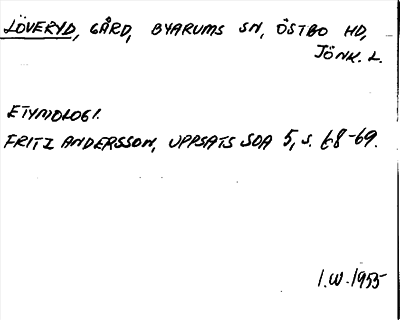 LÖVERYD, GÅRD, BYARUMS SN, ÖSTBO HD,
JÖNK. L.
ETYMOLOGI.
FRITZ ANDERSSON, UPPSATS SOA 5, S. 68-69.
I.W. 1955